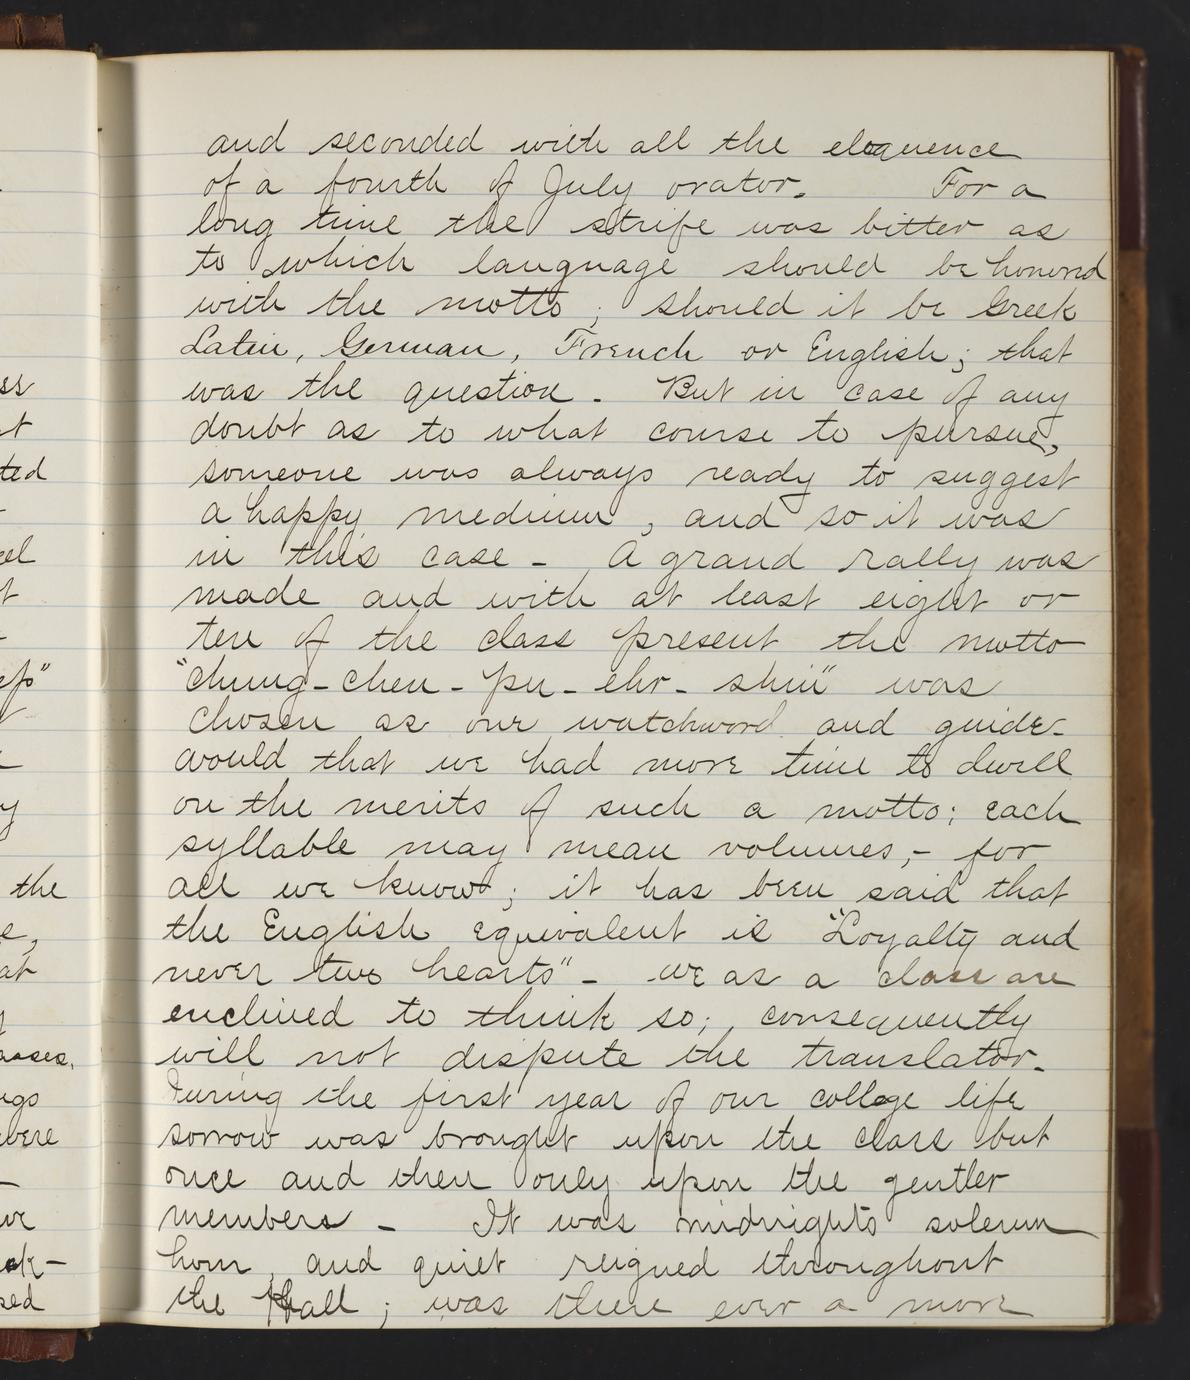 and seconded with all the eloquence
of a fourth of July orator. For a
long time the strife was bitter as
to which language should be honored
with the motto; should it be Greek
Latin, German, French or English; that
was the question. But in case of any
doubt as to what course to pursue,
someone was always ready to suggest
a happy medium, and so it was
in this case - A grand rally was
made and with at least eight or
ten of the class present the motto
"chung-chen-pu-ehr-shin" was
chosen as our watchword and guide-
would that we had more time to dwell
on the merits of such a motto; each
syllable may mean volumes,- for
all we know; it has been said that
the English equivalent is "Loyalty and
never two hearts"- we as a class are
enclined to think so; consequently
will not dispute the translator.
During the first year of our college life
sorrow was brought upon the class but
once and then only upon the gentler
members - It was midnights solemn
hour, and quiet reigned throughout
the Hall; was there ever a more
ss
t
ted
el
t
y
the
s,
at
asses.
ngs
were
ve
ck-
sed